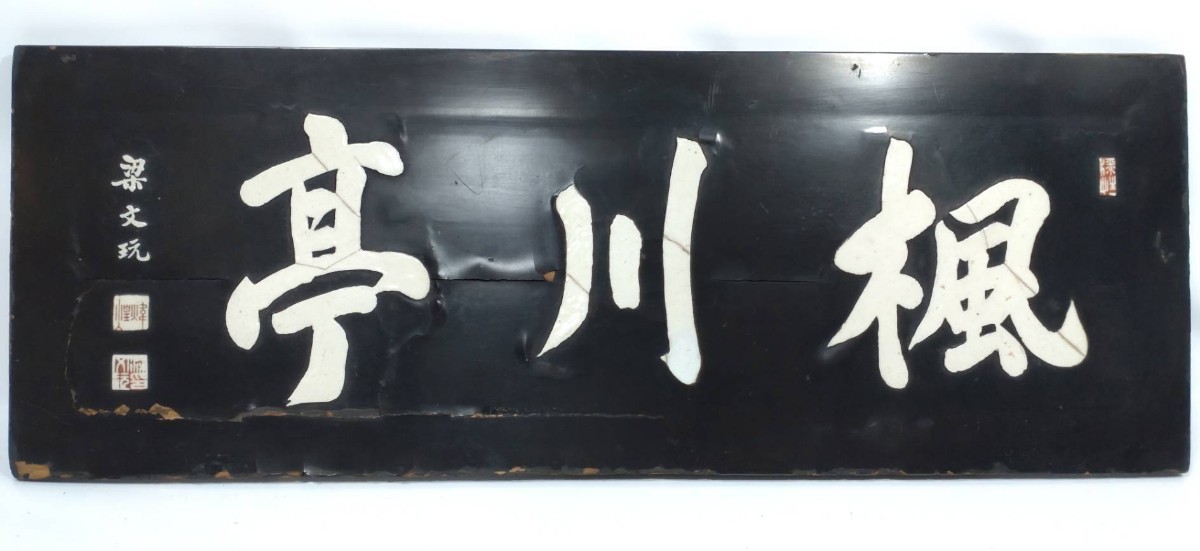 楓川亭
梁文玩